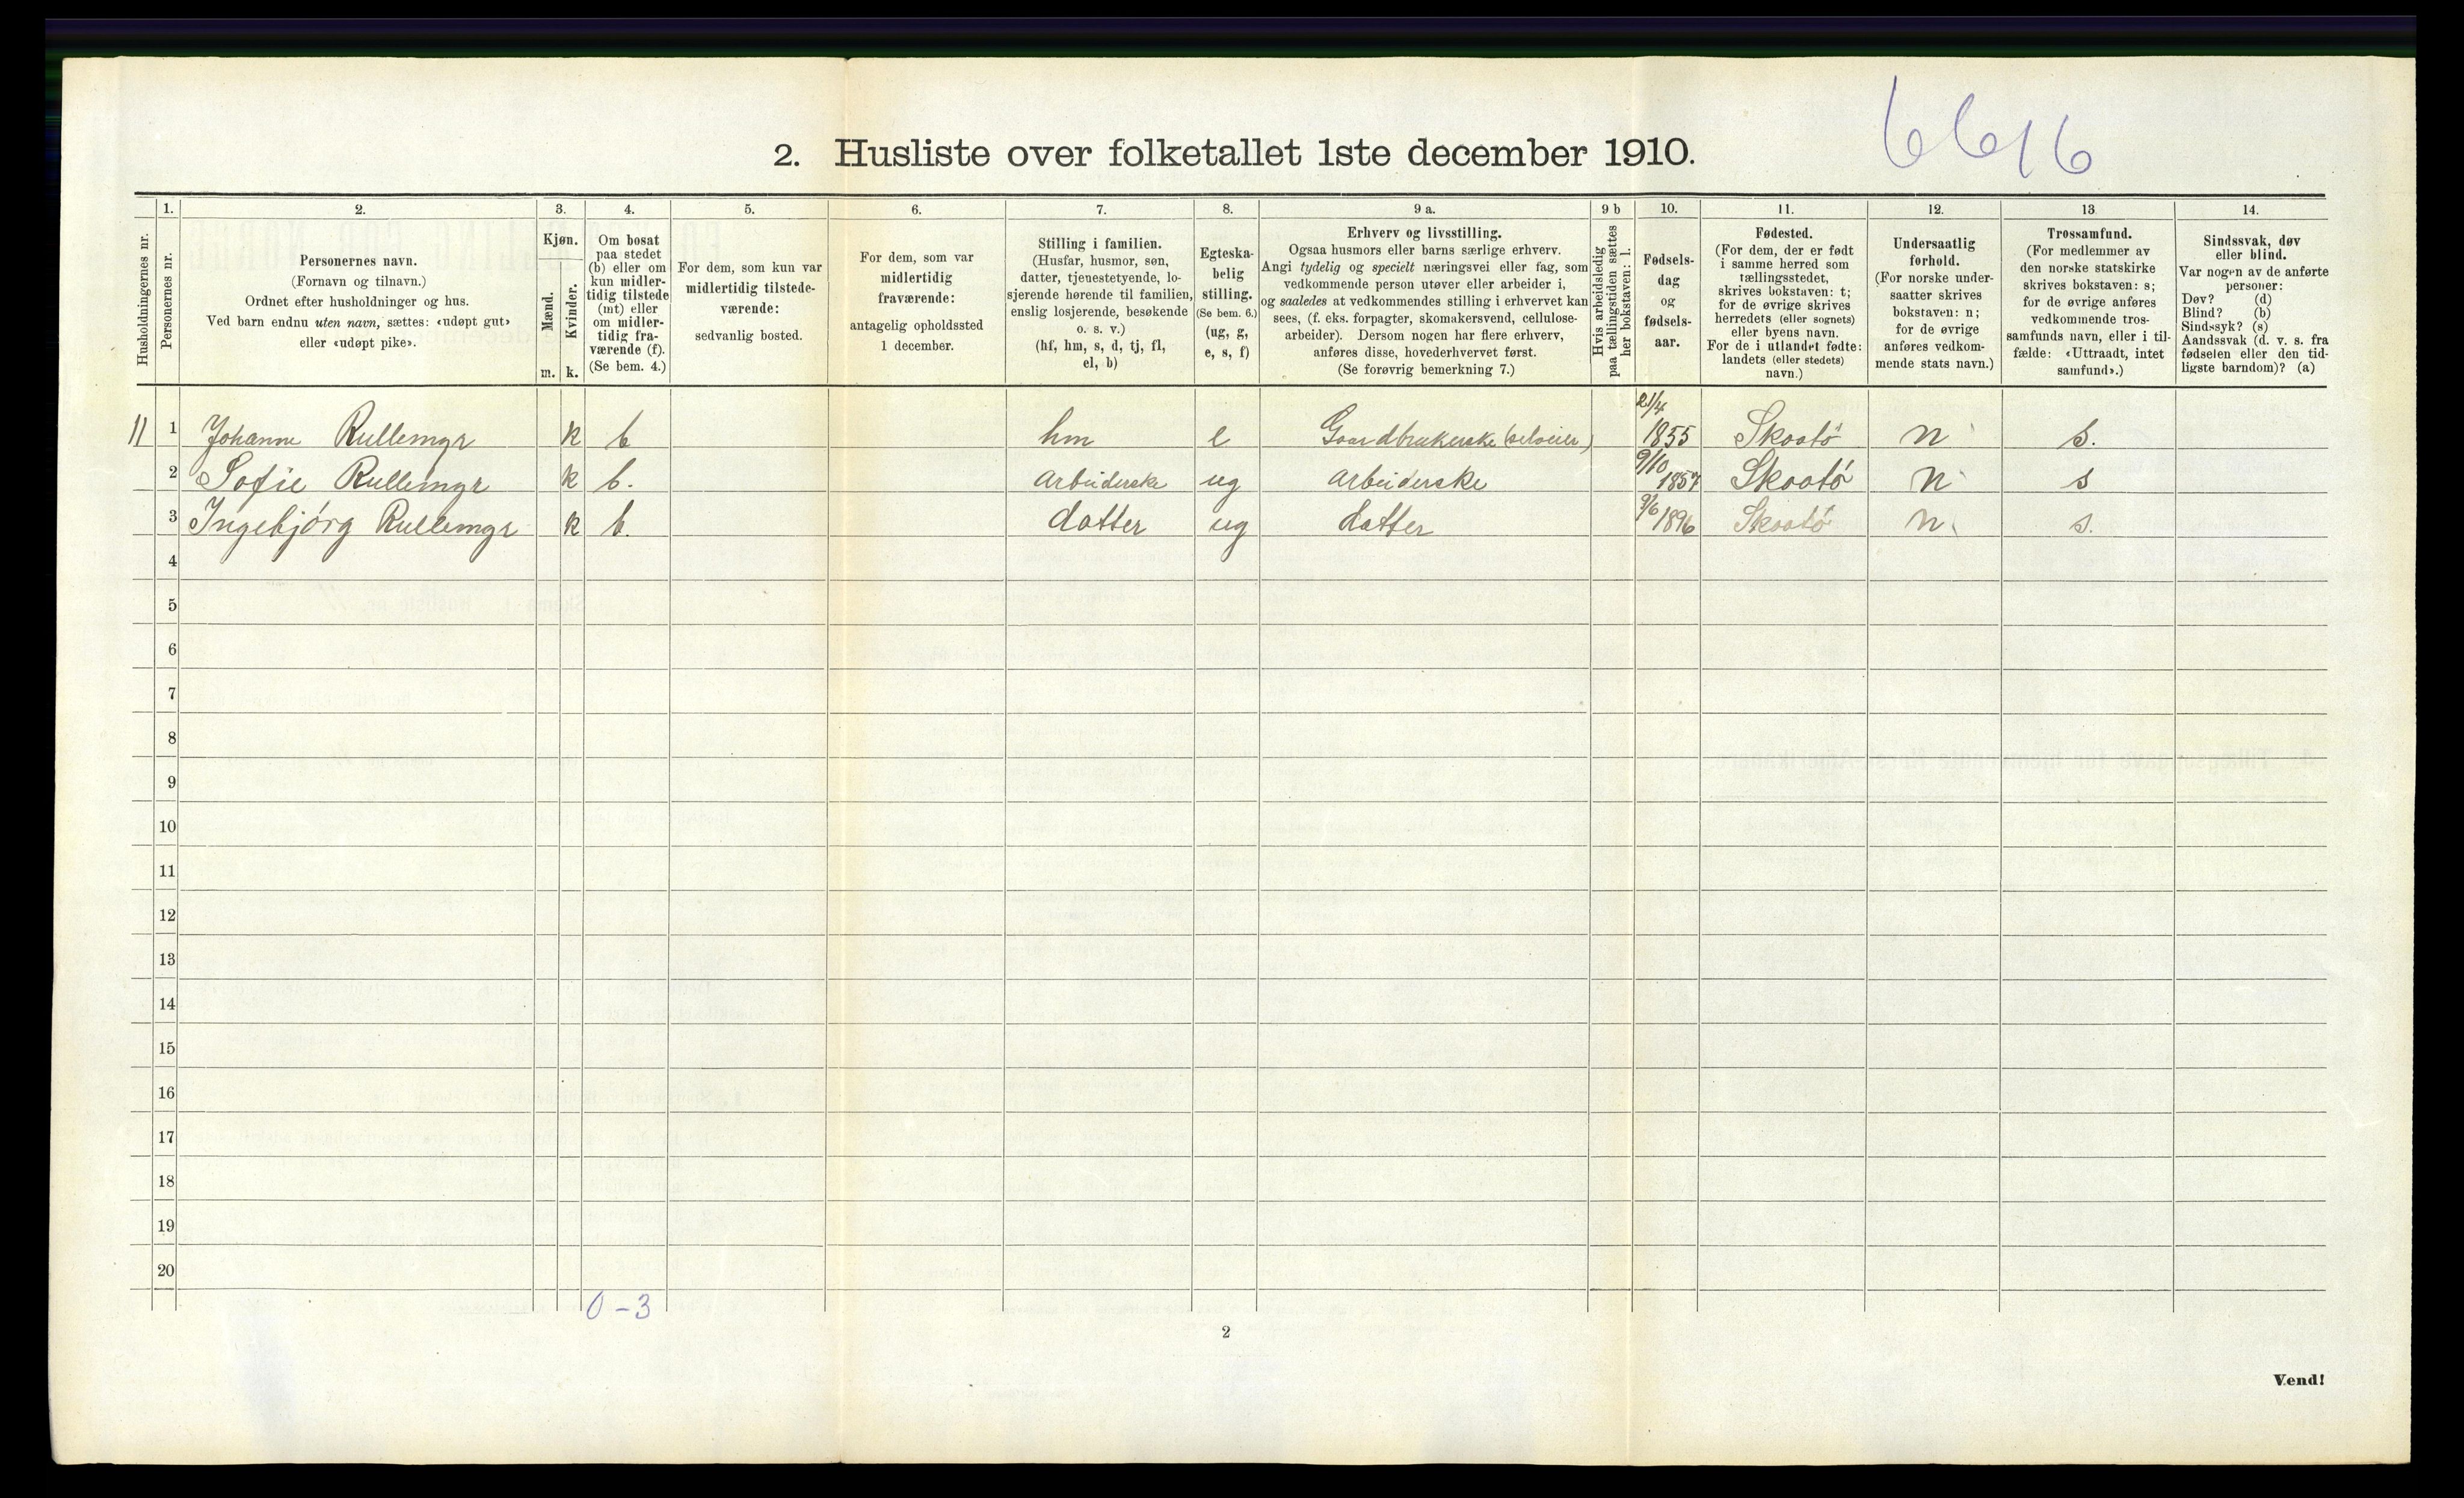 6616
2. Husliste over folketallet 1ste december 1910.
Husholdningernes nr.
1.
Personernes nr.
2.
Personernes navn.
(Fornavn og tilnavn.)
Ordnet efter husholdninger og hus.
Ved barn endnu uten navn, sættes: «udøpt gut»
eller «udøpt pike».
3.
Kjøn.
Mænd.
Kvinder.
m. k.
4.
Om bosat
paa stedet
(b) eller om
kun midler-
tidig tilstede
(mt) eller
om midler-
tidig fra-
værende (f).
(Se bem. 4.)
5.
For dem, som kun var
midlertidig tilstede-
værende:
sedvanlig bosted.
6.
For dem, som var
midlertidig
fraværende:
antagelig opholdssted
1 december.
7.
Stilling i familien.
(Husfar, husmor, søn,
datter, tjenestetyende, lo-
sjerende hørende til familien,
enslig losjerende, besøkende
o. s. v.)
(hf, hm, s, d, tj, fl,
el, b)
8.
Egteska-
belig
stilling.
(Se bem. 6.)
(ug, g,
e, s, f)
9 a.
Erhverv og livsstilling.
Ogsaa husmors eller barns særlige erhverv.
Angi tydelig og specielt næringsvei eller fag, som
vedkommende person utøver eller arbeider i,
og saaledes at vedkommendes stilling i erhvervet kan
sees, (f. eks. forpagter, skomakersvend, cellulose-
arbeider). Dersom nogen har flere erhverv,
anføres disse, hovederhvervet først.
(Se forøvrig bemerkning 7.)
9 b
Hvis arbeidsledig
paa tællingstiden sættes
her bokstaven: l.
10.
Fødsels-
dag
og
fødsels-
aar.
11.
Fødested.
(For dem, der er født
i samme herred som
tællingsstedet,
skrives bokstaven: t;
for de øvrige skrives
herredets (eller sognets)
eller byens navn.
For de i utlandet fødte:
landets (eller stedets)
navn.)
12.
Undersaatlig
forhold.
(For norske under-
saatter skrives
bokstaven: n;
for de øvrige
anføres vedkom-
mende stats navn.)
13
Trossamfund.
(For medlemmer av
den norske statskirke
skrives bokstaven: s;
for de øvrige anføres
vedkommende tros-
samfunds navn, eller i til-
fælde: «Uttraadt, intet
samfund».)
14.
Sindssvak, døv
eller blind.
Var nogen av de anførte
personer:
Døv? (d)
Blind? (b)
Sindssyk? (s)
Aandssvak (d. v. s. fra
fødselen eller den tid-
ligste barndom)? (a)
11 1 Johanne Rullemyr k b hm e Gaardbrukerske (selveier) 21/4 1855 Skaatö n s.
2 Sofie Rullemyr k b. arbeiderske ug arbeiderske 9/10 1857 Skaatö n s
3 Ingebjörg Rullemyr k b. datter ug datter 9/6 1896 Skaatö n. s.
4
5
6
7
8
9
10
11
12
13
14
15
16
17
18
19
20
0-3
2
Vend!